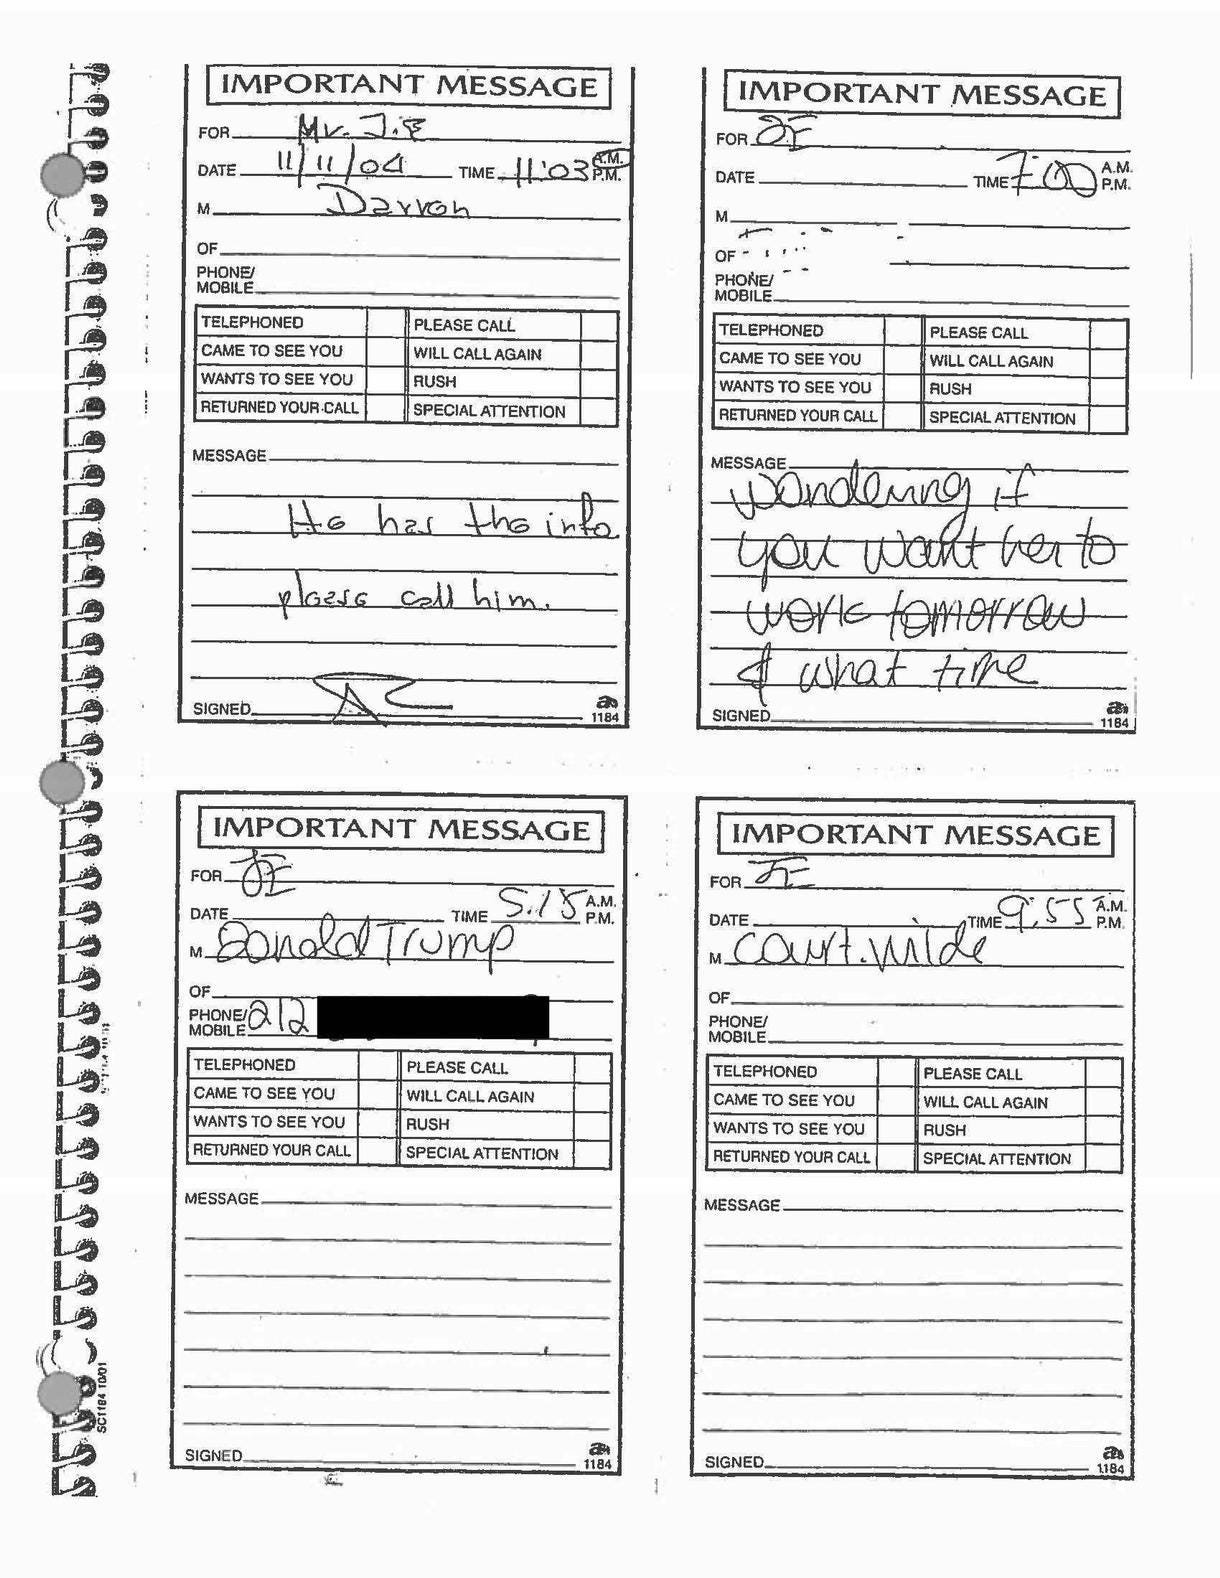 IMPORTANT MESSAGE
FOR Mr. J.E
DATE 11/11/04 TIME 11:03 A.M. P.M.
M Darren
OF
PHONE/
MOBILE
TELEPHONED PLEASE CALL
CAME TO SEE YOU WILL CALL AGAIN
WANTS TO SEE YOU RUSH
RETURNED YOUR CALL SPECIAL ATTENTION
MESSAGE
He has the info
please call him.
SIGNED
1184
IMPORTANT MESSAGE
FOR JE
DATE TIME 7:00 A.M. P.M.
M
OF
PHONE/
MOBILE
TELEPHONED PLEASE CALL
CAME TO SEE YOU WILL CALL AGAIN
WANTS TO SEE YOU RUSH
RETURNED YOUR CALL SPECIAL ATTENTION
MESSAGE
wondering if
you want her to
work tomorrow
& what time
SIGNED
1184
IMPORTANT MESSAGE
FOR JE
DATE TIME 5:15 A.M. P.M.
M Donald Trump
OF
PHONE/
MOBILE 212
TELEPHONED PLEASE CALL
CAME TO SEE YOU WILL CALL AGAIN
WANTS TO SEE YOU RUSH
RETURNED YOUR CALL SPECIAL ATTENTION
MESSAGE
SIGNED
1184
IMPORTANT MESSAGE
FOR JE
DATE TIME 9:55 A.M. P.M.
M Court.Wilde
OF
PHONE/
MOBILE
TELEPHONED PLEASE CALL
CAME TO SEE YOU WILL CALL AGAIN
WANTS TO SEE YOU RUSH
RETURNED YOUR CALL SPECIAL ATTENTION
MESSAGE
SIGNED
1184
SC1184 10/01